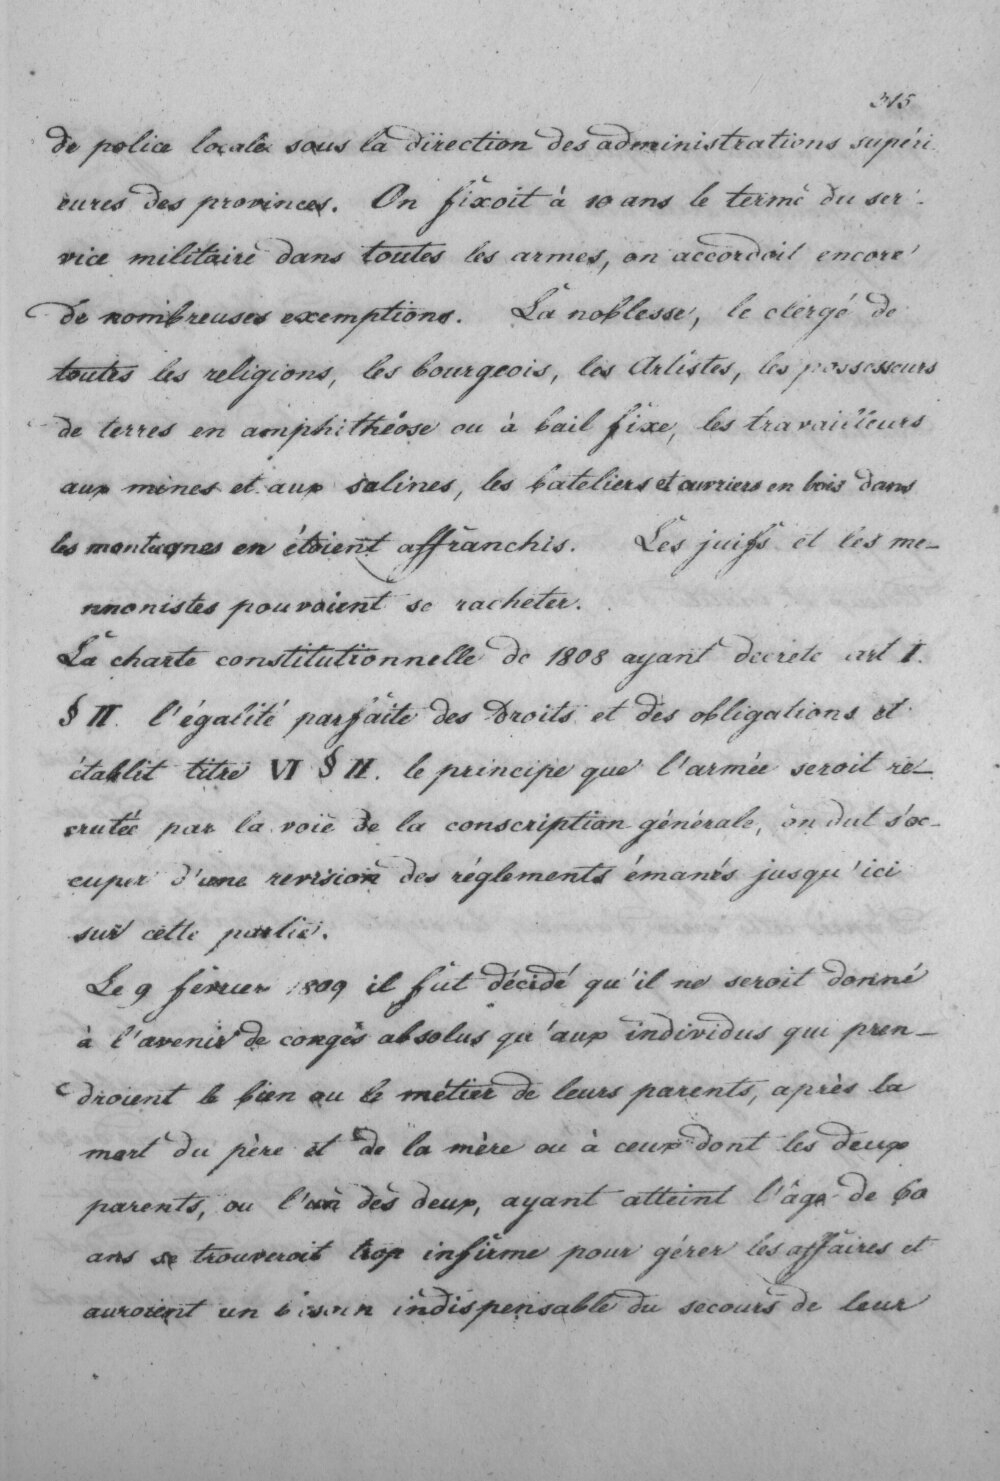 315
de police locale sous la direction des administrations supéri
eures des provinces. On fixoit à 10 ans le terme du ser-
vice militaire dans toutes les armes, on accordoit encore
de nombreuses exemptions. La noblesse, le clergé de
toutes les religions, les bourgeois, les Artistes, les possesseurs
de terres en amphithéose ou à bail fixe, les travailleurs
aux mines et aux salines, les bateliers et ouvriers en bois dans
les montagnes en étoient affranchis. Les juifs et les me-
nnonistes pouvoient se racheter.
La charte constitutionnelle de 1808 ayant decrété art I.
§ II. l'égalité parfaite des Droits et des obligations et
établit titre VI § II. le principe que l'armée seroit re-
crutée par la voie de la conscription générale, on dut s'oc-
cuper d'une revision des réglements émanés jusqu'ici
sur cette partie.
Le 9 février 1809 il fut décidé qu'il ne seroit donné
à l'avenir de congés absolus qu'aux individus qui pren-
droient le bien ou le métier de leurs parents, après la
mort du père et de la mère ou à ceux dont les deux
parents, ou l'un des deux, ayant atteint l'âge de 60
ans se trouveroit trop infirme pour gérer les affaires et
auroient un besoin indispensable du secours de leur